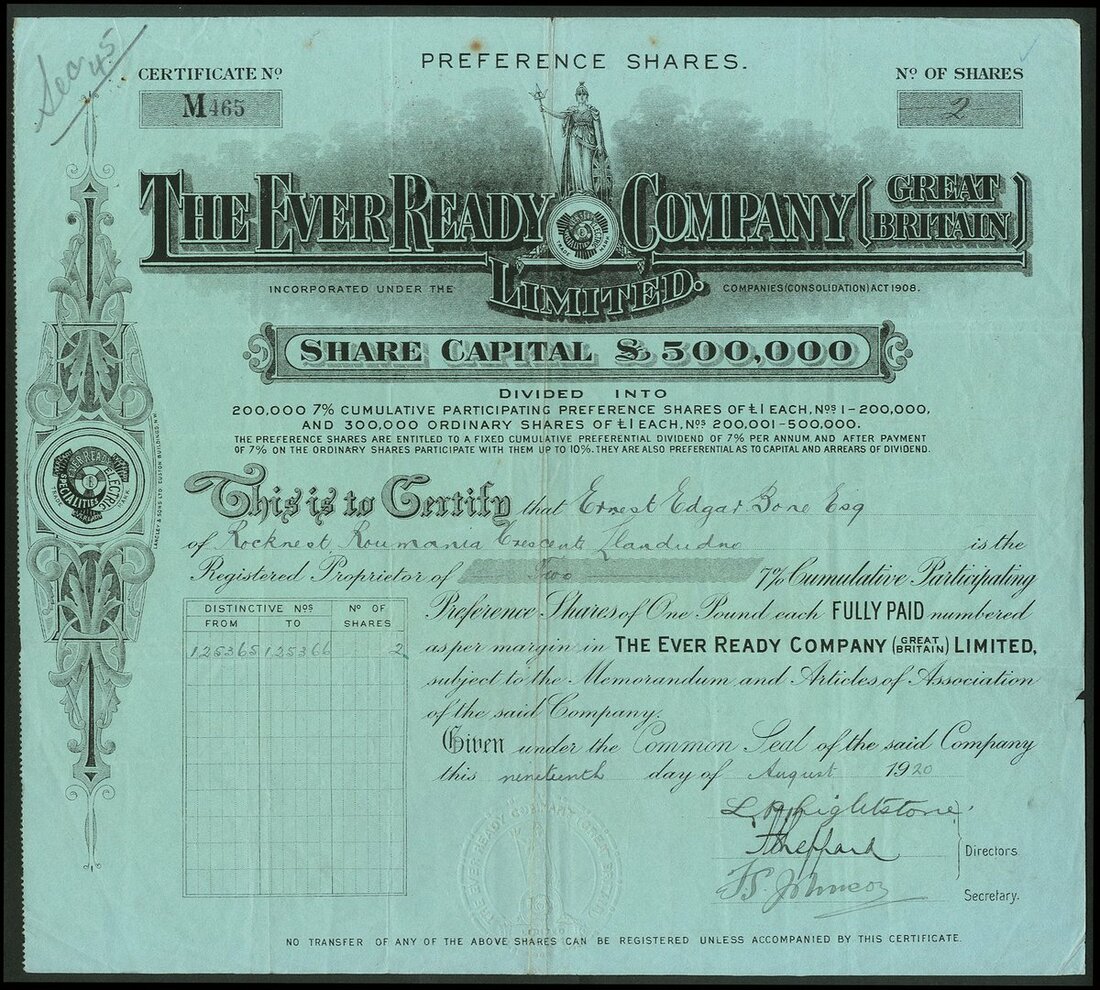 PREFERENCE SHARES.
CERTIFICATE No
M465
No OF SHARES
2
THE EVER READY COMPANY (GREAT BRITAIN)
LIMITED.
INCORPORATED UNDER THE COMPANIES (CONSOLIDATION) ACT 1908.
SHARE CAPITAL £500,000
DIVIDED INTO
200,000 7% CUMULATIVE PARTICIPATING PREFERENCE SHARES OF £1 EACH, Nos 1-200,000,
AND 300,000 ORDINARY SHARES OF £1 EACH, Nos 200,001-500,000.
THE PREFERENCE SHARES ARE ENTITLED TO A FIXED CUMULATIVE PREFERENTIAL DIVIDEND OF 7% PER ANNUM, AND AFTER PAYMENT
OF 7% ON THE ORDINARY SHARES PARTICIPATE WITH THEM UP TO 10%. THEY ARE ALSO PREFERENTIAL AS TO CAPITAL AND ARREARS OF DIVIDEND.
This is to Certify that Ernest Edgar Bone Esq
of Rocknest, Roumania Crescent Llandudno is the
Registered Proprietor of Two 7% Cumulative Participating
Preference Shares of One Pound each FULLY PAID numbered
as per margin in THE EVER READY COMPANY (GREAT BRITAIN) LIMITED,
subject to the Memorandum and Articles of Association
of the said Company.
Given under the Common Seal of the said Company
this nineteenth day of August 1920
DISTINCTIVE Nos
FROM TO
No OF SHARES
125365 125366 2
Directors.
Secretary.
EVER READY
ELECTRIC
SPECIALITIES
TRADE MARK
LANGLEY & SONS LTD. EUSTON BUILDINGS, N.W.
THE EVER READY COMPANY (GREAT BRITAIN)
LIMITED
NO TRANSFER OF ANY OF THE ABOVE SHARES CAN BE REGISTERED UNLESS ACCOMPANIED BY THIS CERTIFICATE.